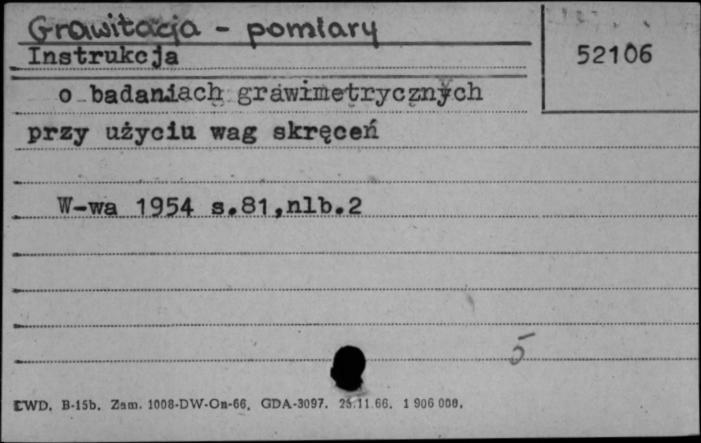 Grawitacja - pomiary
Instrukcja
52106
o badaniach grawimetrycznych
przy użyciu wag skręceń
W-wa 1954 s.81,nlb.2
5
CWD. B-15b. Zam. 1008-DW-On-66. GDA-3097. 25.11.66. 1 906 000.